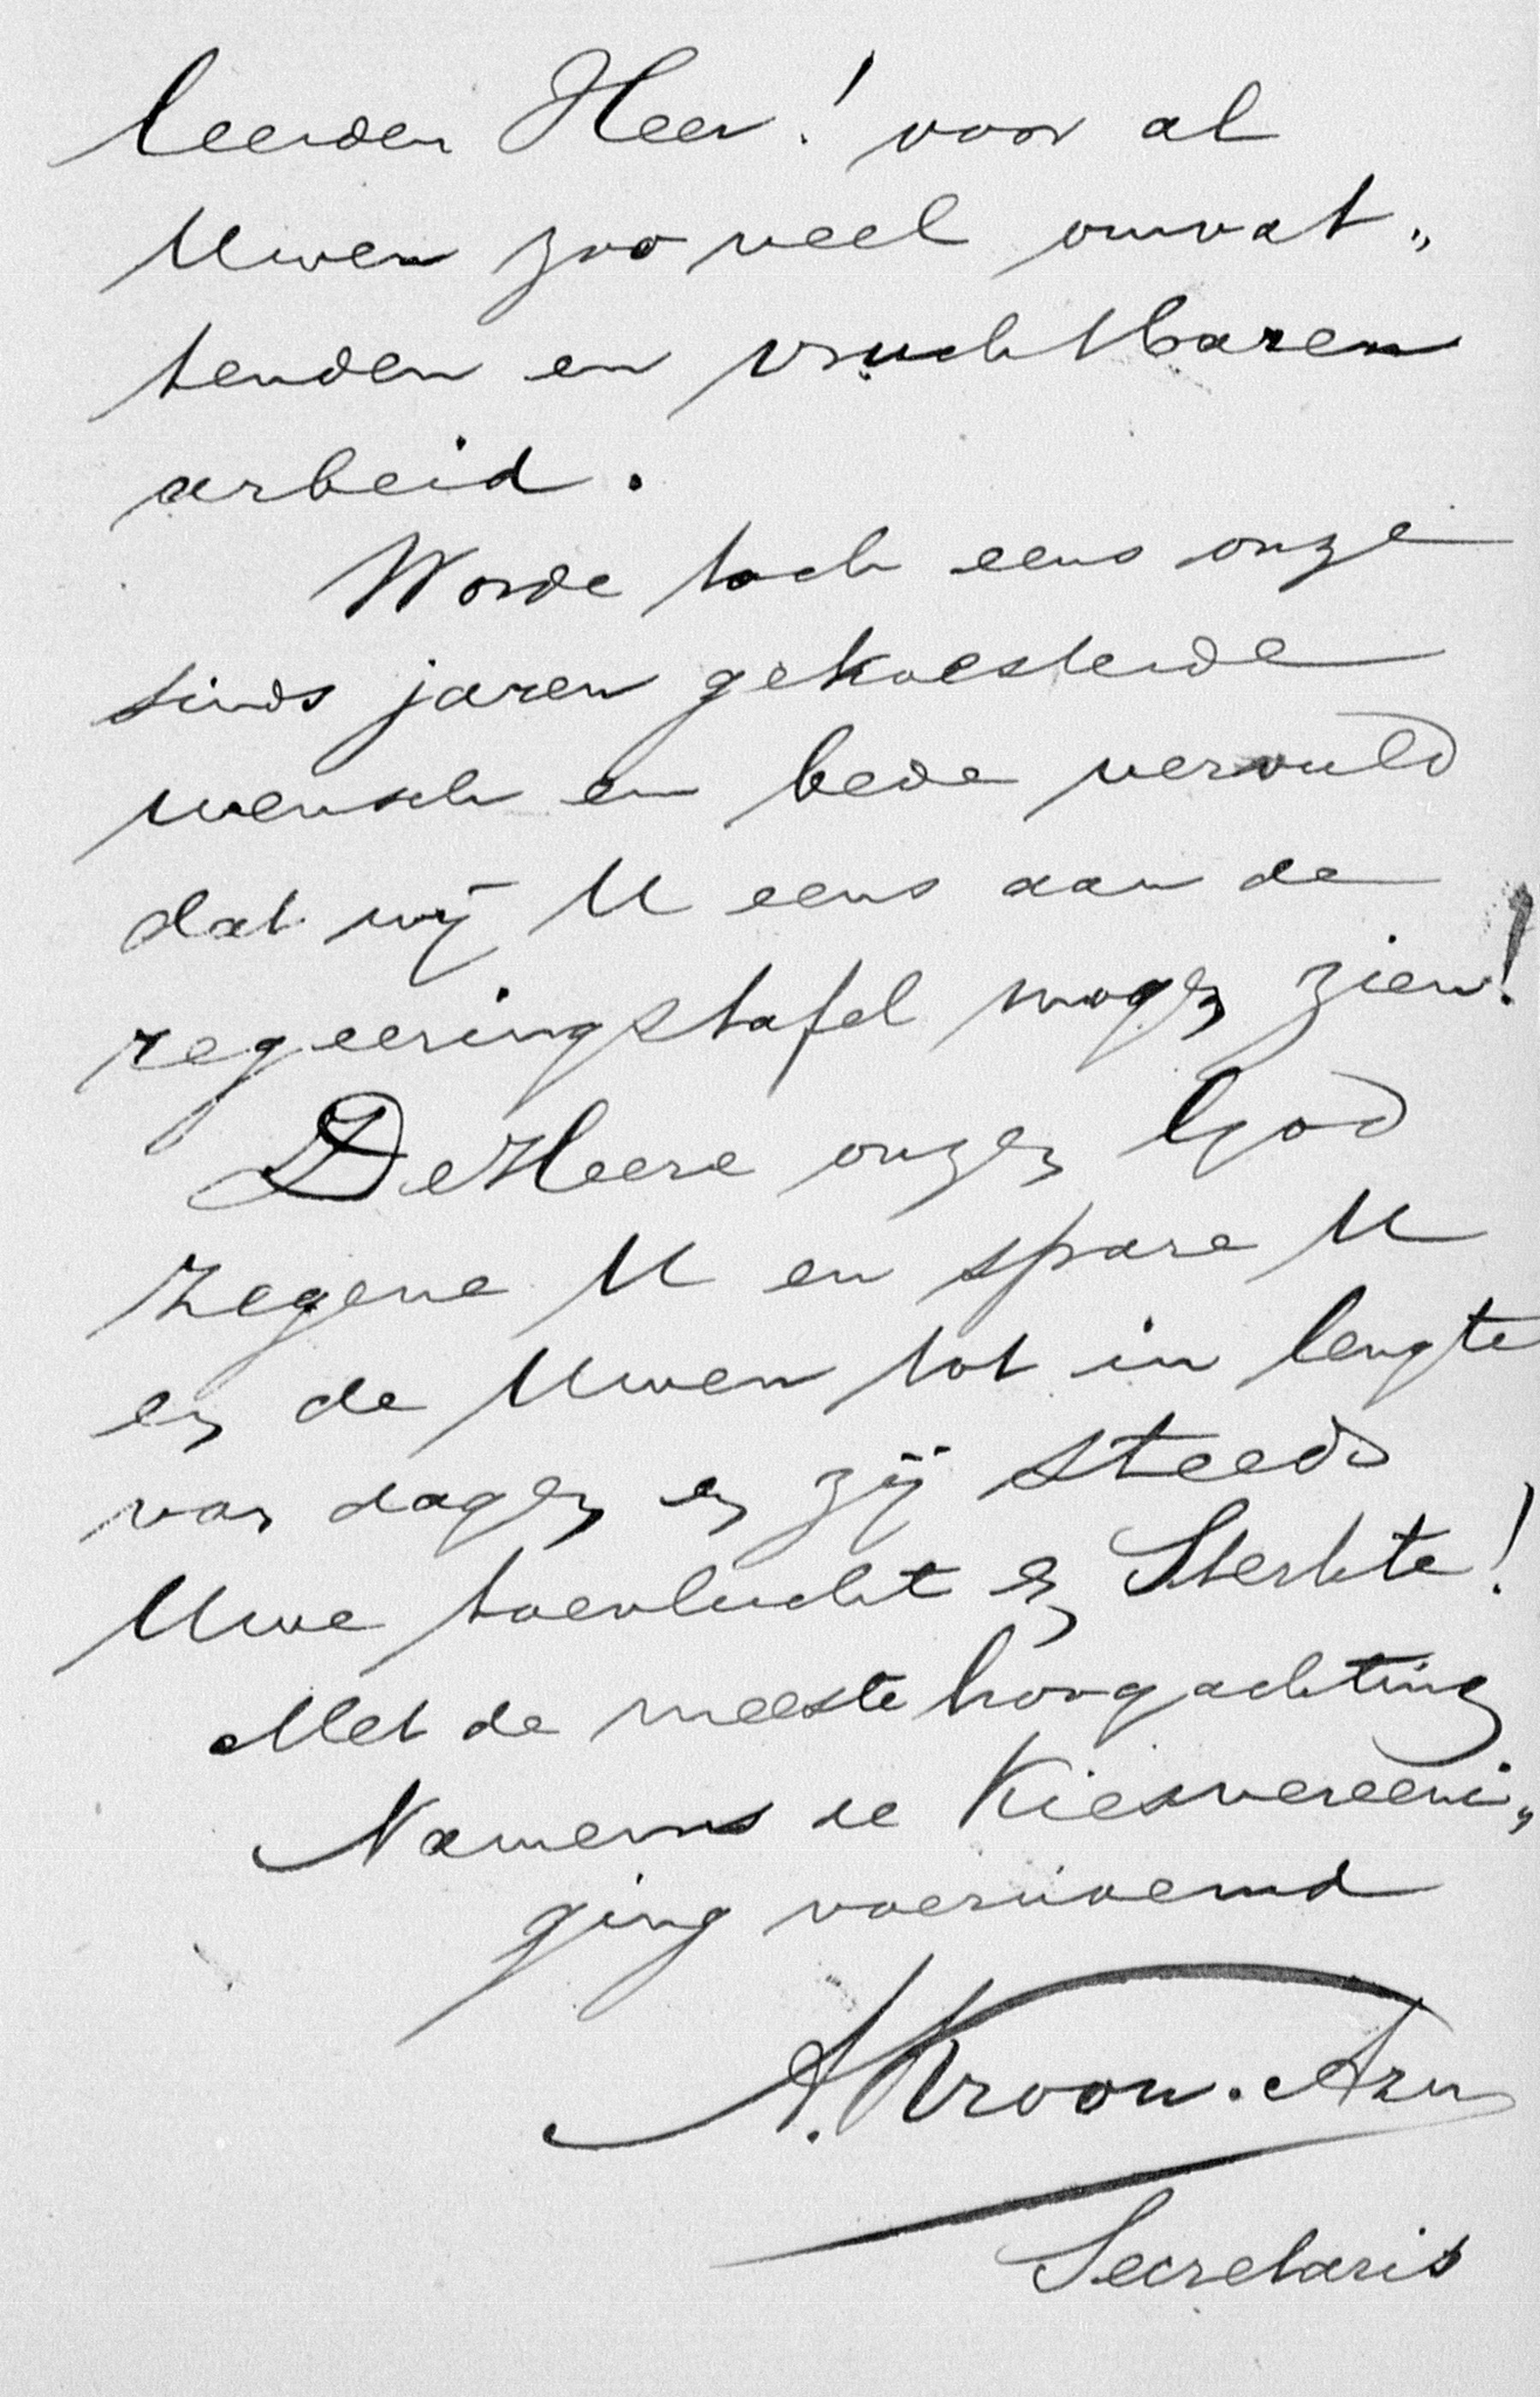 leerden Heer! voor al
Uwen zoo veel omvat„
tenden en vruchtbaren
arbeid.
Worde toch eens onze
sinds jaren gekoesterde
wensch en bede vervuld
dat wij U eens aan de
regeeringstafel mogen zien!
De Heere onzen God
zegene U en spare U
en de Uwen tot in lengte
van dagen en zij steeds
Uwe toevlucht en Sterkte!
Met de meeste hoogachting
Namens de Kiesvereeni„
ging voernoemd
A. Kroon. Azn
Secretaris